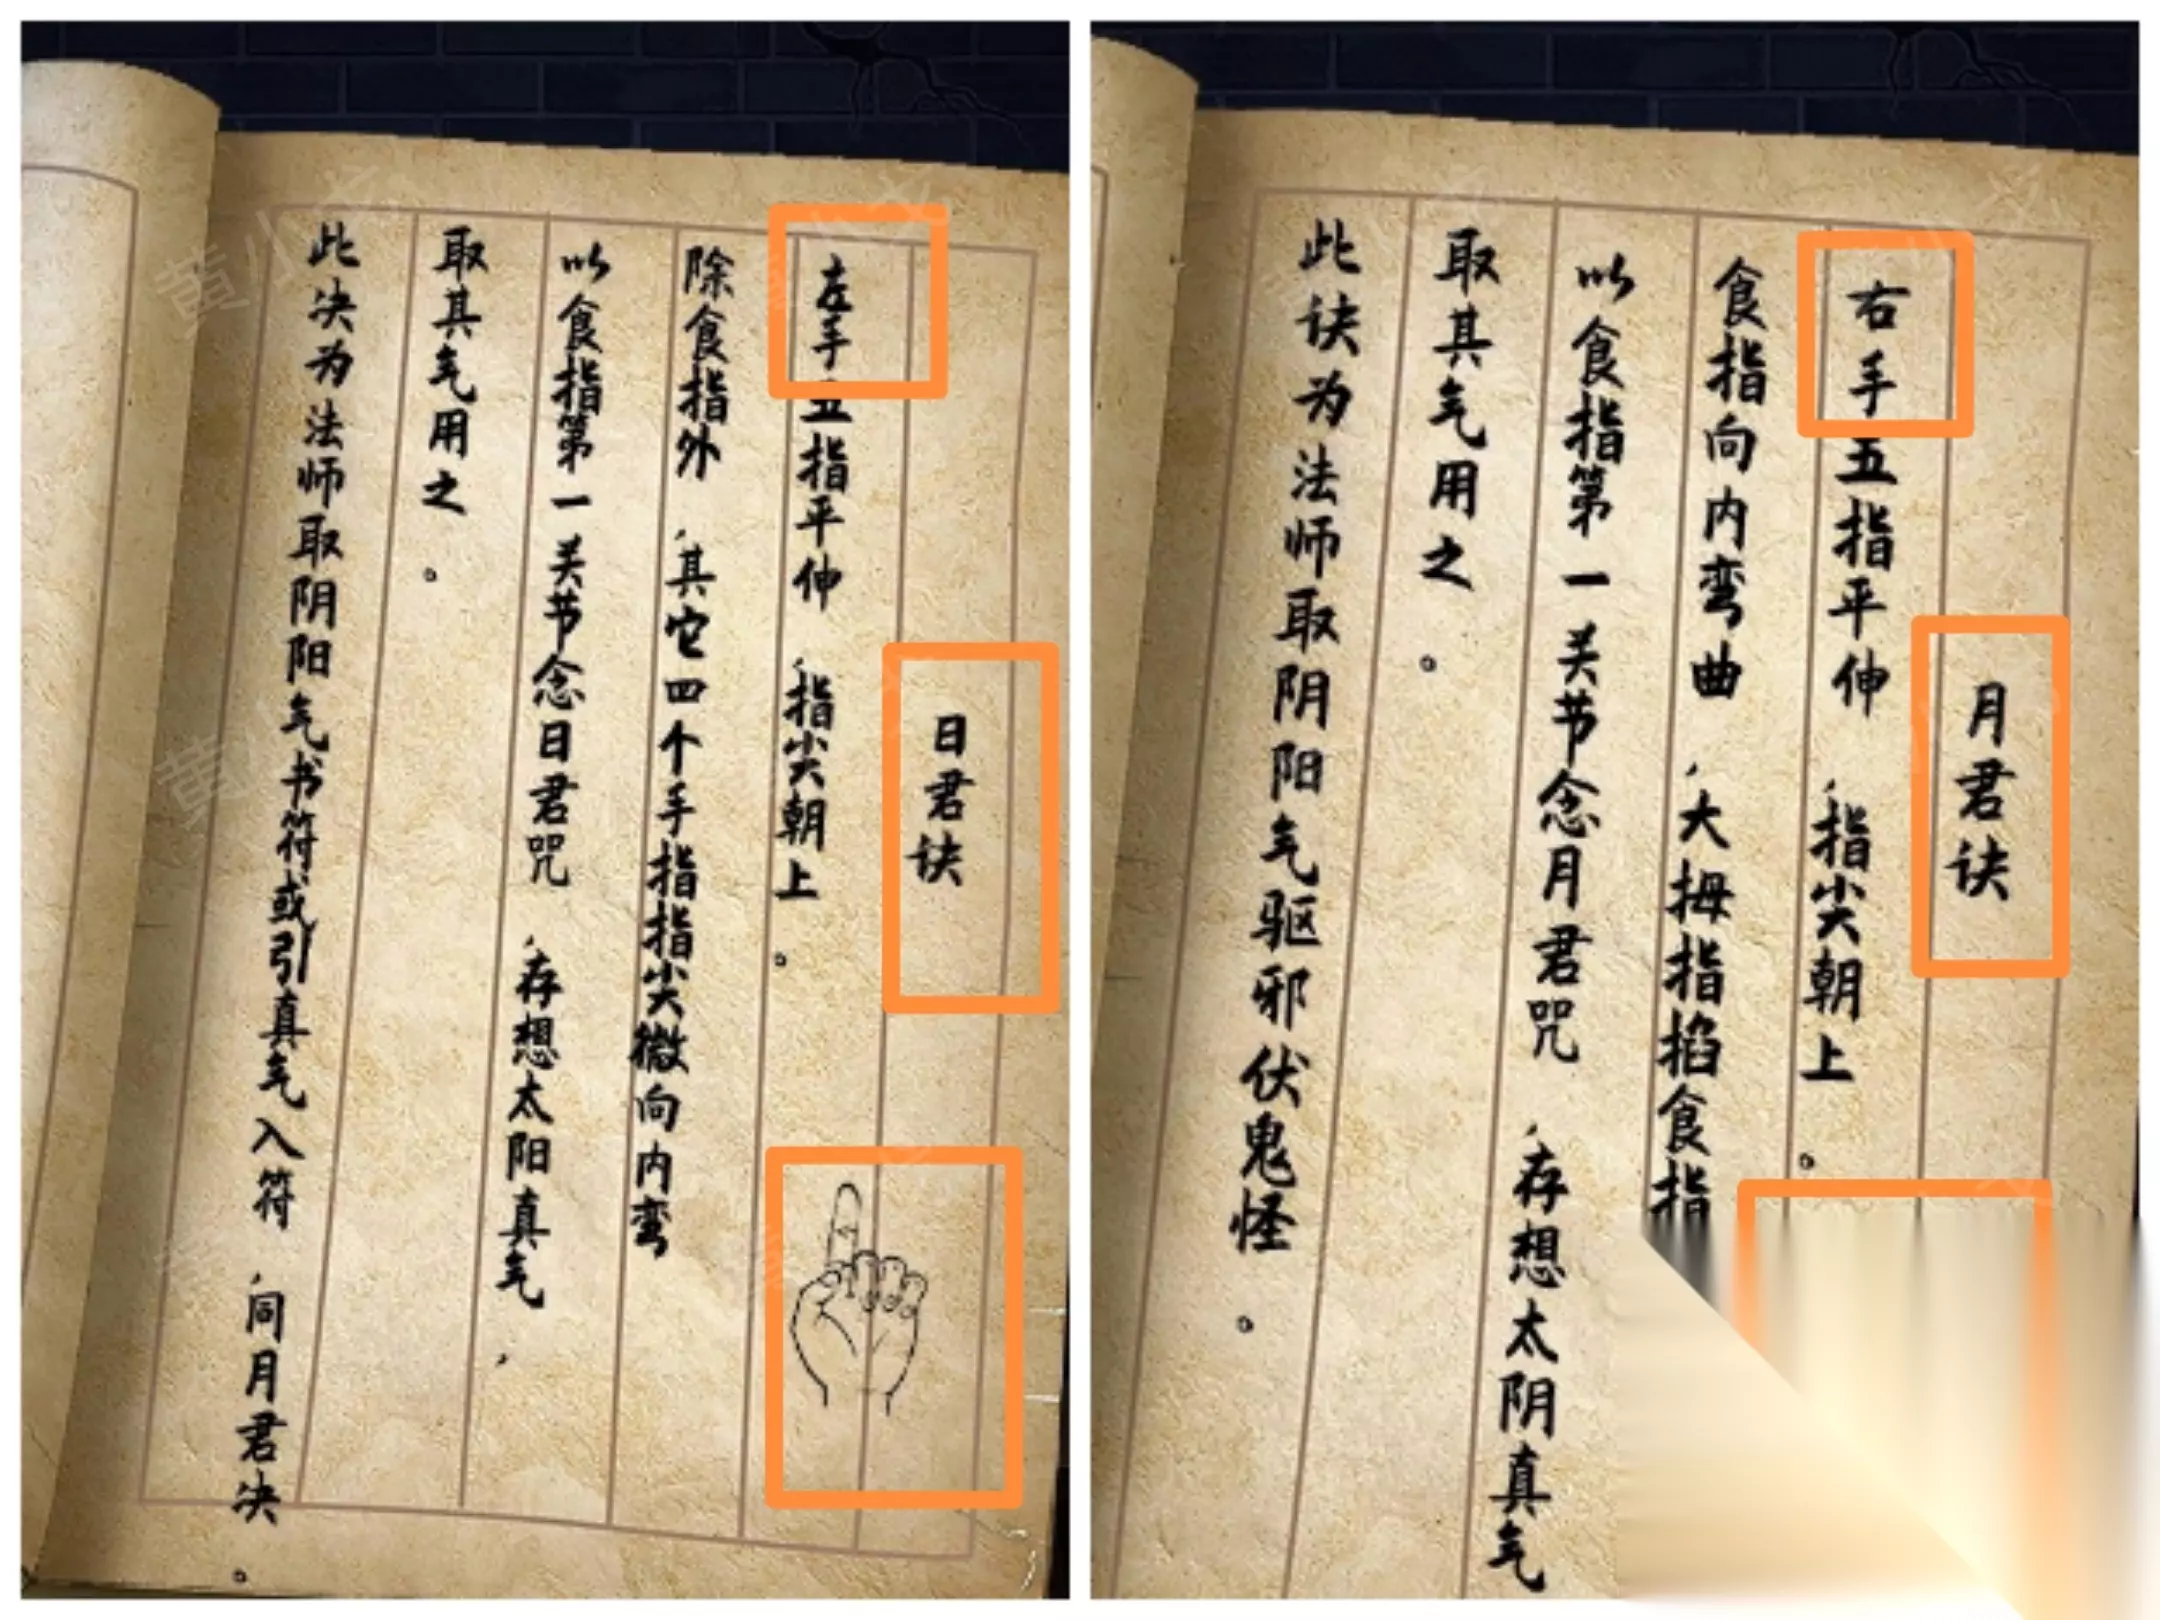 日君诀
左手五指平伸，指尖朝上。
除食指外，其它四个手指指尖微向内弯
以食指第一关节念日君咒，存想太阳真气，
取其气用之。
此决为法师取阴阳气书符或引真气入符，同月君决。
月君诀
右手五指平伸，指尖朝上。
食指向内弯曲，大拇指掐食指
以食指第一关节念月君咒，存想太阴真气
取其气用之。
此诀为法师取阴阳气驱邪伏鬼怪。